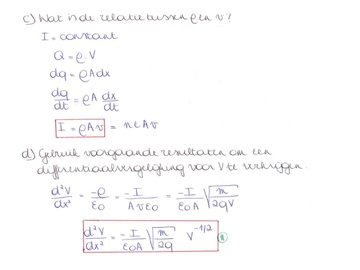 c) Wat is de relatie tussen ρ en v?
I = constant
Q = ρ V
dq = ρ A dx
dq/dt = ρ A dx/dt
I = ρAv = neAv
d) Gebruik voorgaande resultaten om een
differentiaalvergelijking voor V te verkrijgen.
d²V/dx² = -ρ/ε0 = -I/Avε0 = -I/ε0A √(m/2qV)
d²V/dx² = -I/ε0A √(m/2q) V^-1/2